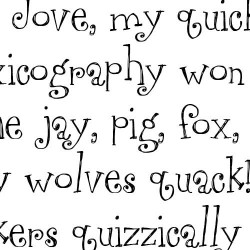 Jove, my quick
xicography won
e jay, pig, fox,
y wolves quack!
kers quizzically